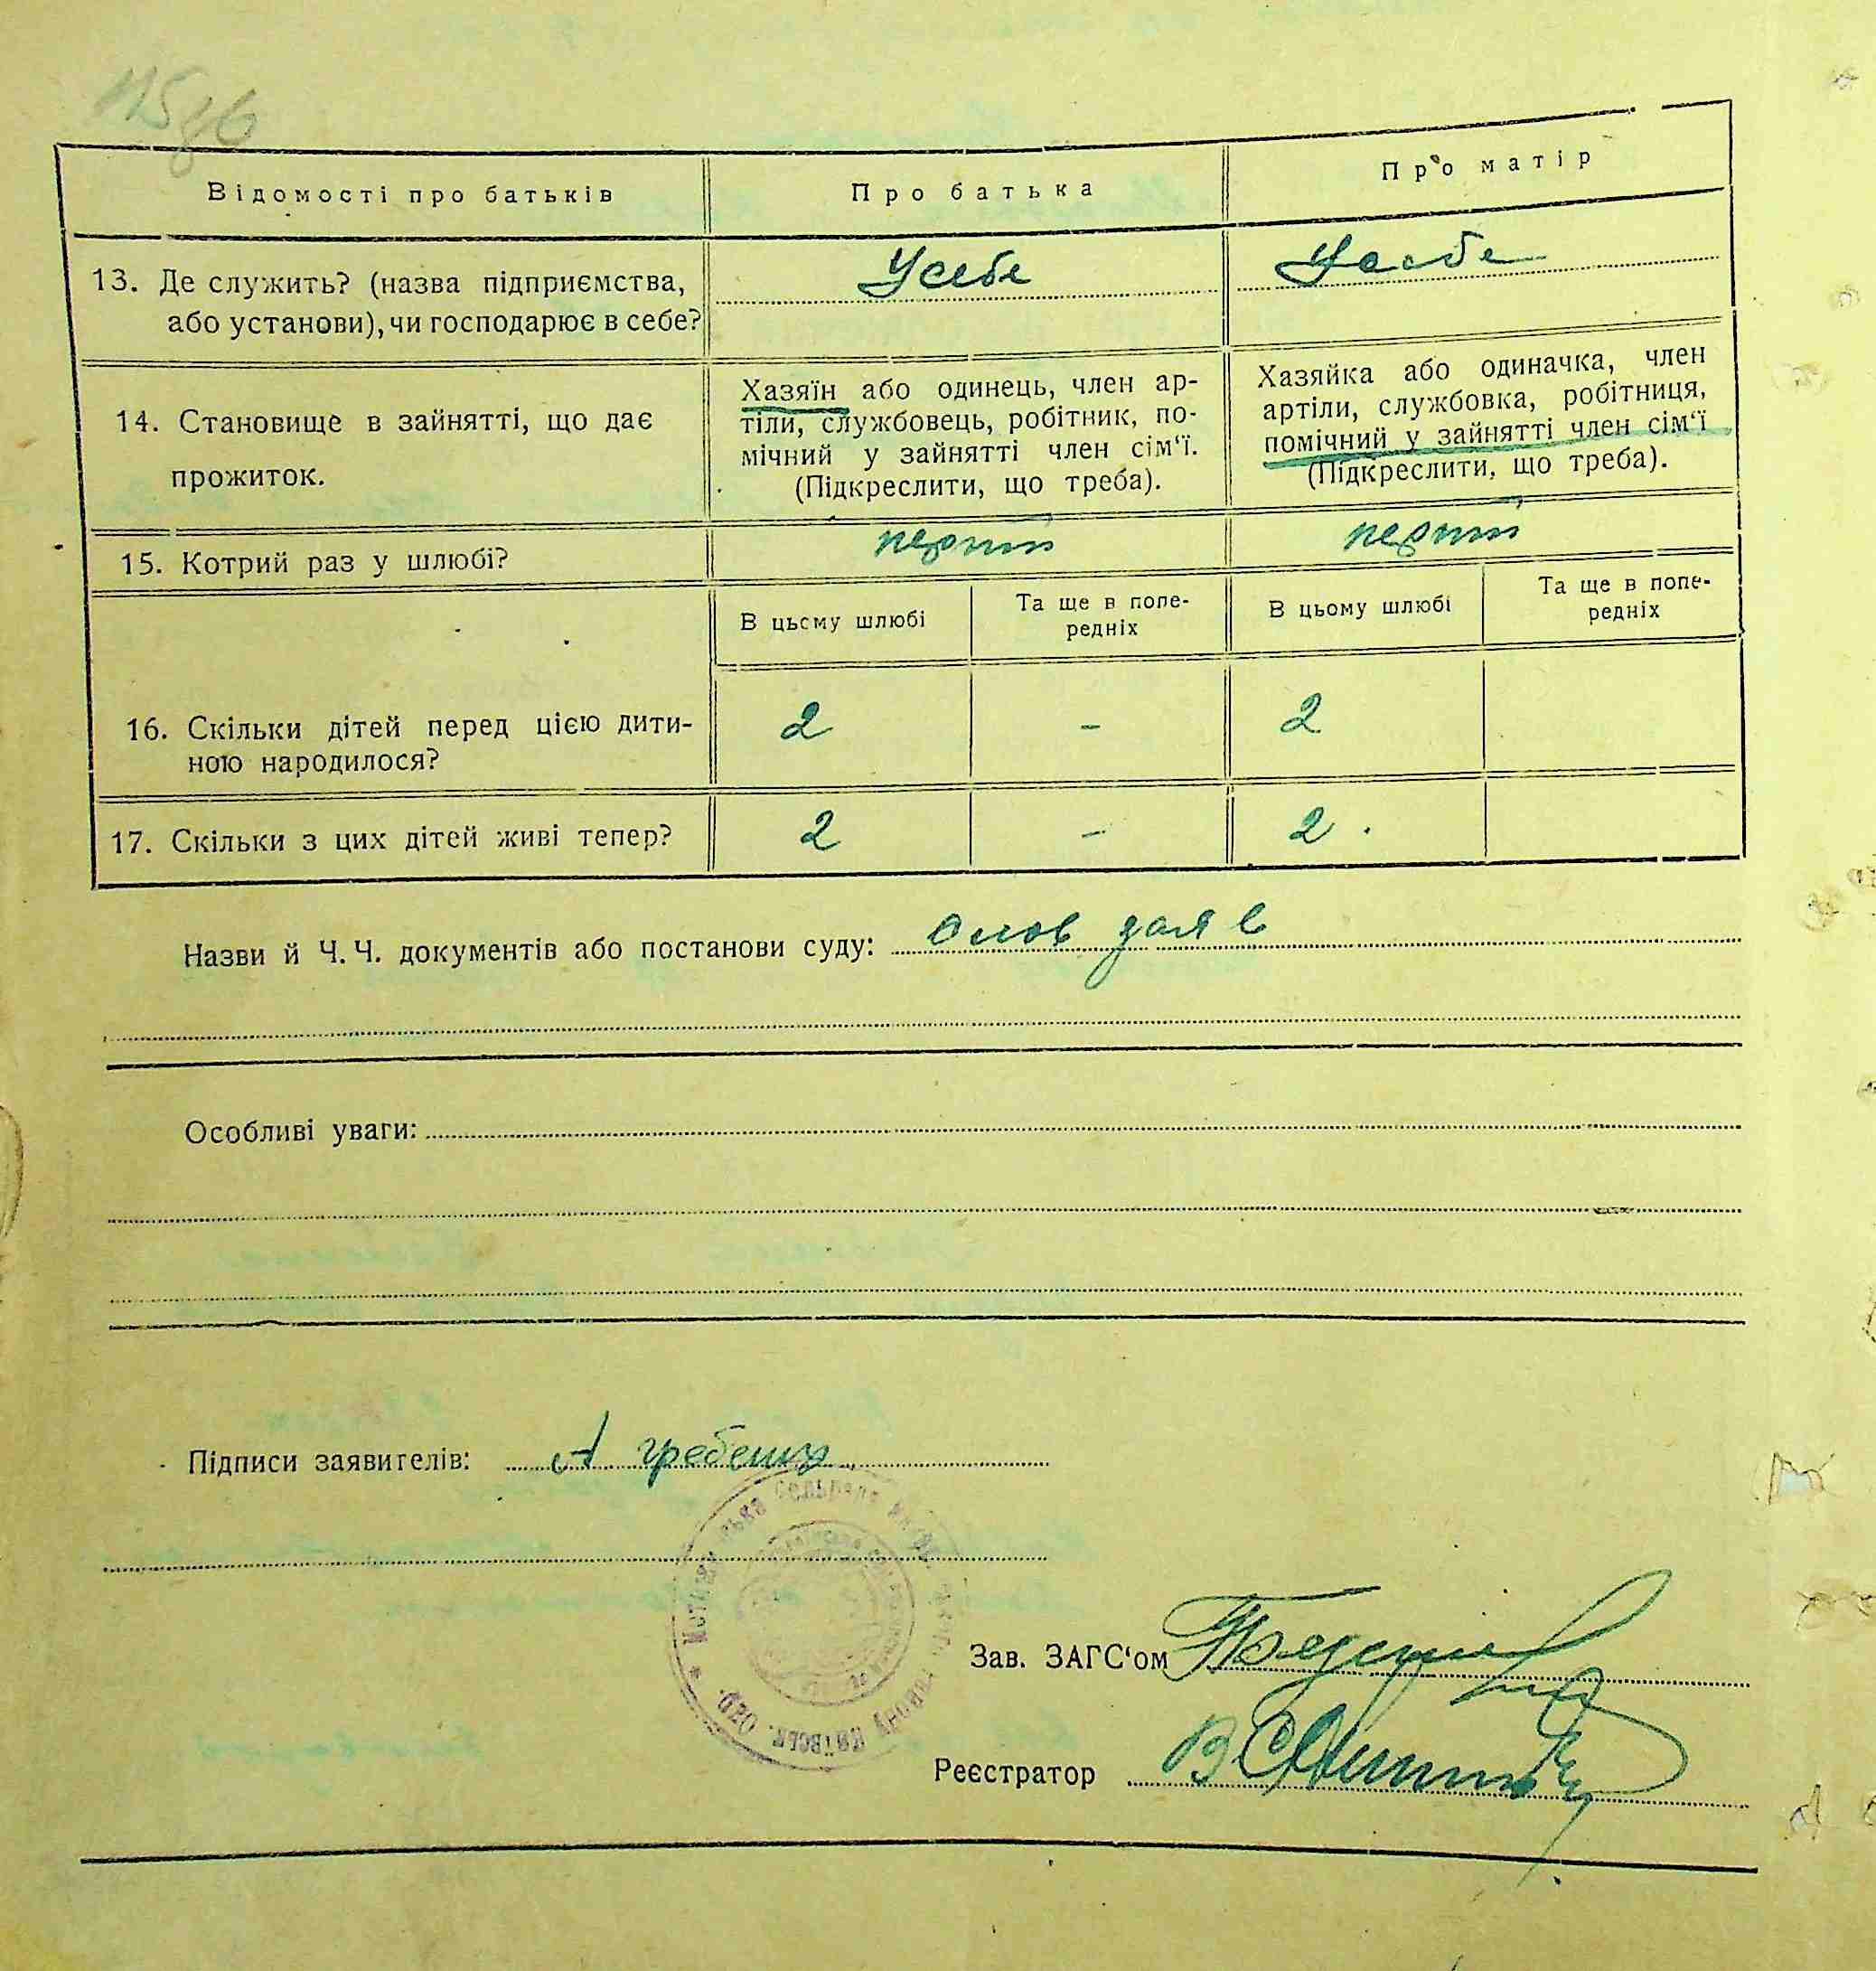 Відомості про батьків
Про батька
Про матір
13. Де служить? (назва підприємства,
або установи), чи господарює в себе?
Усебе
Усебе
14. Становище в зайнятті, що дає
прожиток.
Хазяїн або одинець, член ар-
тіли, службовець, робітник, по-
мічний у зайнятті член сім‘ї.
(Підкреслити, що треба).
Хазяйка або одиначка, член
артіли, службовка, робітниця,
помічний у зайнятті член сім‘ї
(Підкреслити, що треба).
15. Котрий раз у шлюбі?
перший
перший
В цьому шлюбі
Та ще в попе-
редніх
В цьому шлюбі
Та ще в попе-
редніх
16. Скільки дітей перед цією дити-
ною народилося?
2
-
2
17. Скільки з цих дітей живі тепер?
2
-
2
Назви й Ч. Ч. документів або постанови суду:
Особливі уваги:
Підписи заявителів: А
Зав. ЗАГС‘ом
Реєстратор